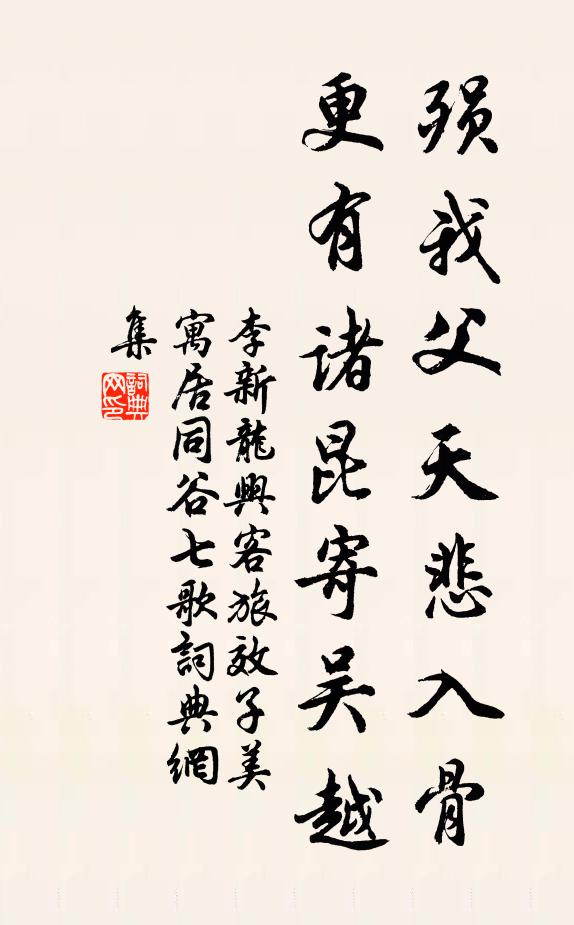 殞我父天悲入骨
更有诸昆寄吴越
李新龍興客旅效子美
寓居同谷七歌詞典網
集
詞典
网印